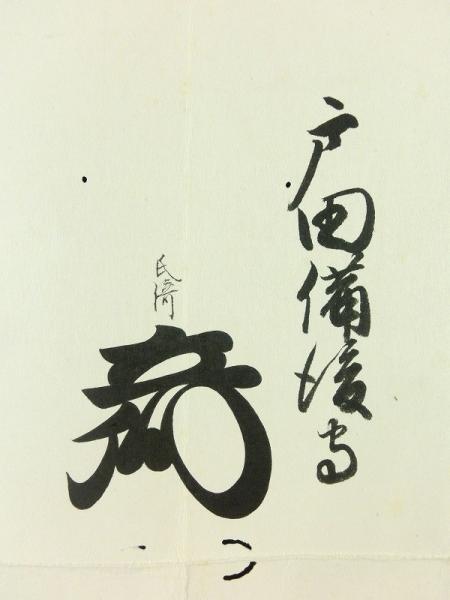 戸田備後守
氏